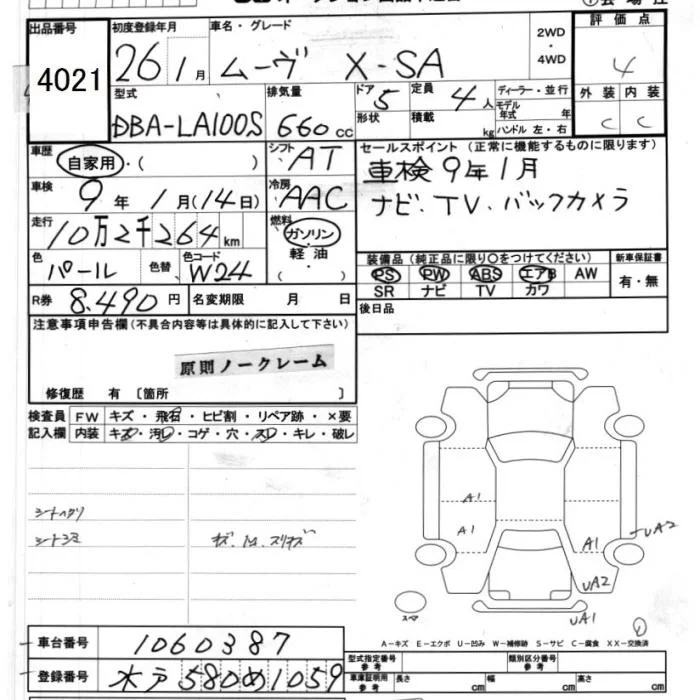 出品番号 初度登録年月 車名・グレード 2WD・4WD 評価点
4021 26 1月 ムーヴ X-SA 4
型式 排気量 ドア 5 定員 4人 ディーラー・並行 外装 内装
DBA-LA100S 660cc 形状 積載 kg モデル年式 年 ハンドル 左・右 C C
車歴 自家用・( ) シフト AT セールスポイント (正常に機能するものに限ります)
車検 9年 1月(14日) 冷房 AAC 車検9年1月
走行 10万2千264km 燃料 ガソリン・軽油・( ) ナビ、TV、バックカメラ
色 パール 色替 色コード W24
装備品 (純正品に限り○をつけてください) 新車保証書
PS PW ABS エアB AW 有・無
SR ナビ TV カワ
R券 8,490円 名変期限 月 日 後日品
注意事項申告欄 (不具合内容等は具体的に記入して下さい)
原則ノークレーム
修復歴 有 〔箇所 〕
検査員 FW キズ・飛石・ヒビ割・リペア跡・×要
記入欄 内装 キズ・汚レ・コゲ・穴・スレ・キレ・破レ
シートヘタリ
シートシミ
A1
A1 A1 UA2
UA2
スペア UA1
①
A-キズ E-エクボ U-凹み W-補修跡 S-サビ C-腐食 XX-交換済
車台番号 1060387 型式指定番号 参考 類別区分番号 参考
登録番号 水戸 580 め 1059 車庫証明用 参考 長さ cm 幅 cm 高さ cm